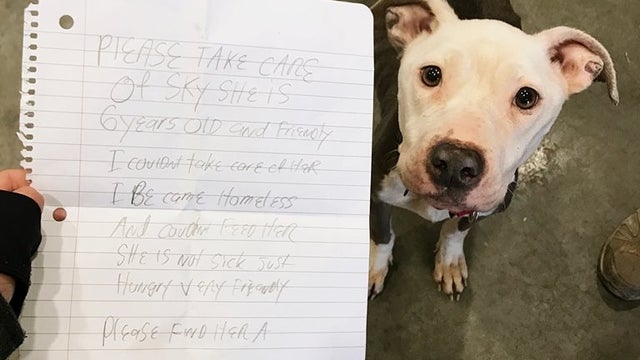 PlEASE TAKE CARE
Of SKY SHE IS
6 years OlD and Friendly
I couldnt take care of HeR
I BE came Homeless
And couldnt FEED HER
SHE IS NOT SICK Just
HUNGRY VERY Friendly
Please FIND HER A